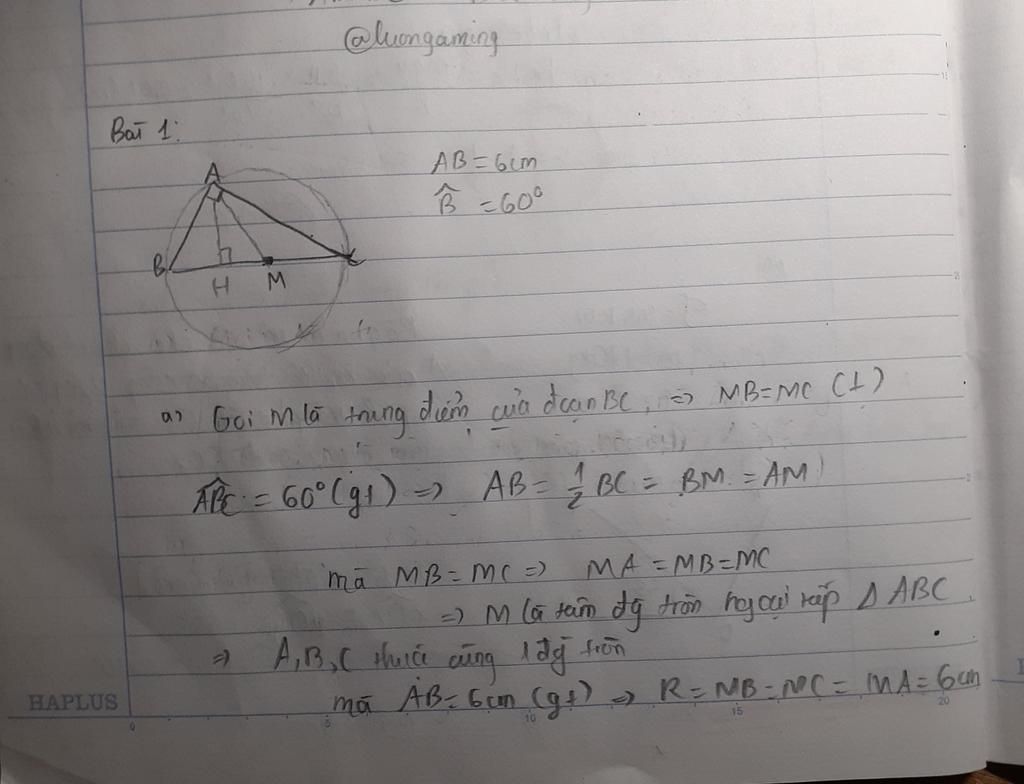 @luongaming
Bài 1:
AB = 6cm
B̂ = 60°
A
B
H
M
C
a) Gọi M là trung điểm của đoạn BC, => MB=MC (1)
ABC = 60° (gt) => AB = 1/2 BC = BM = AM
mà MB = MC => MA = MB = MC
=> M là tâm đg tròn ngoại tiếp Δ ABC
=> A, B, C thuộc cùng 1 đg tròn
mà AB = 6cm (gt) => R = MB = MC = MA = 6cm
HAPLUS
0 5 10 15 20